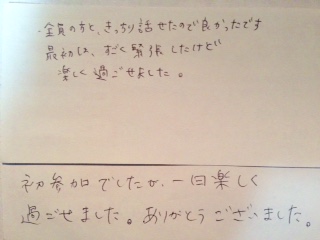 ・全員の方と、きっちり話せたので良かったです
最初は、すごく緊張したけど
楽しく過ごせました。
初参加でしたが、一日楽しく
過ごせました。ありがとうございました。